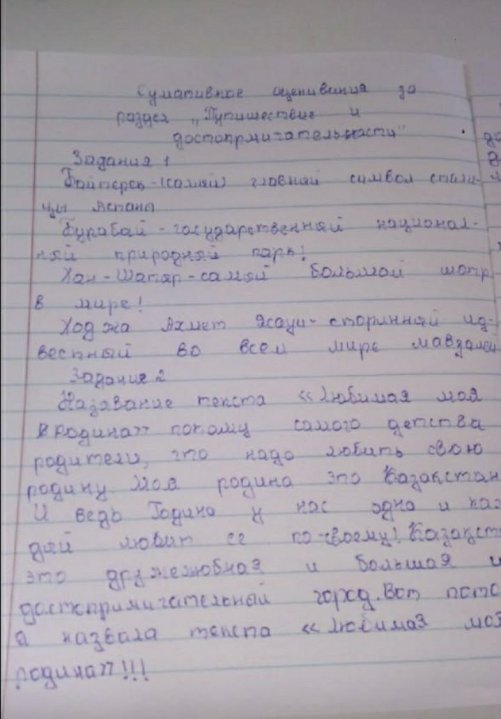 Сумативное оценивания за
раздел „Путишествие и
достопрмигательности"
Задания 1
Байтерек-(самый) главный символ столи-
цы Астана
Бурабай - государственный национал-
ный природный парк!
Хан-Шатыр-самый большой шатр
в мире!
Ходжа Ахмет Ясауи- сторинный из-
вестный во всем мире мавзолей
Задание 2
Название текста «Любимая моя
родина» потому самого детства
родители, что надо любить свою
родину. Моя родина это Казахстан
И ведь Родина у нас одна и каж
дый любит се по-своему! Казахст
это дружелюбная и большая и
достопримигательный город. Вот пото
я назвала текста «Любимая моя
родина»!!!